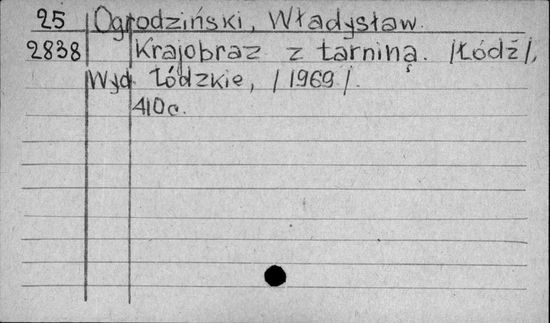 25 Ogrodziński, Władysław.
2838 Krajobraz z tarniną. /Łódź/,
Wyd. Łódzkie, /1969/.
410 c.